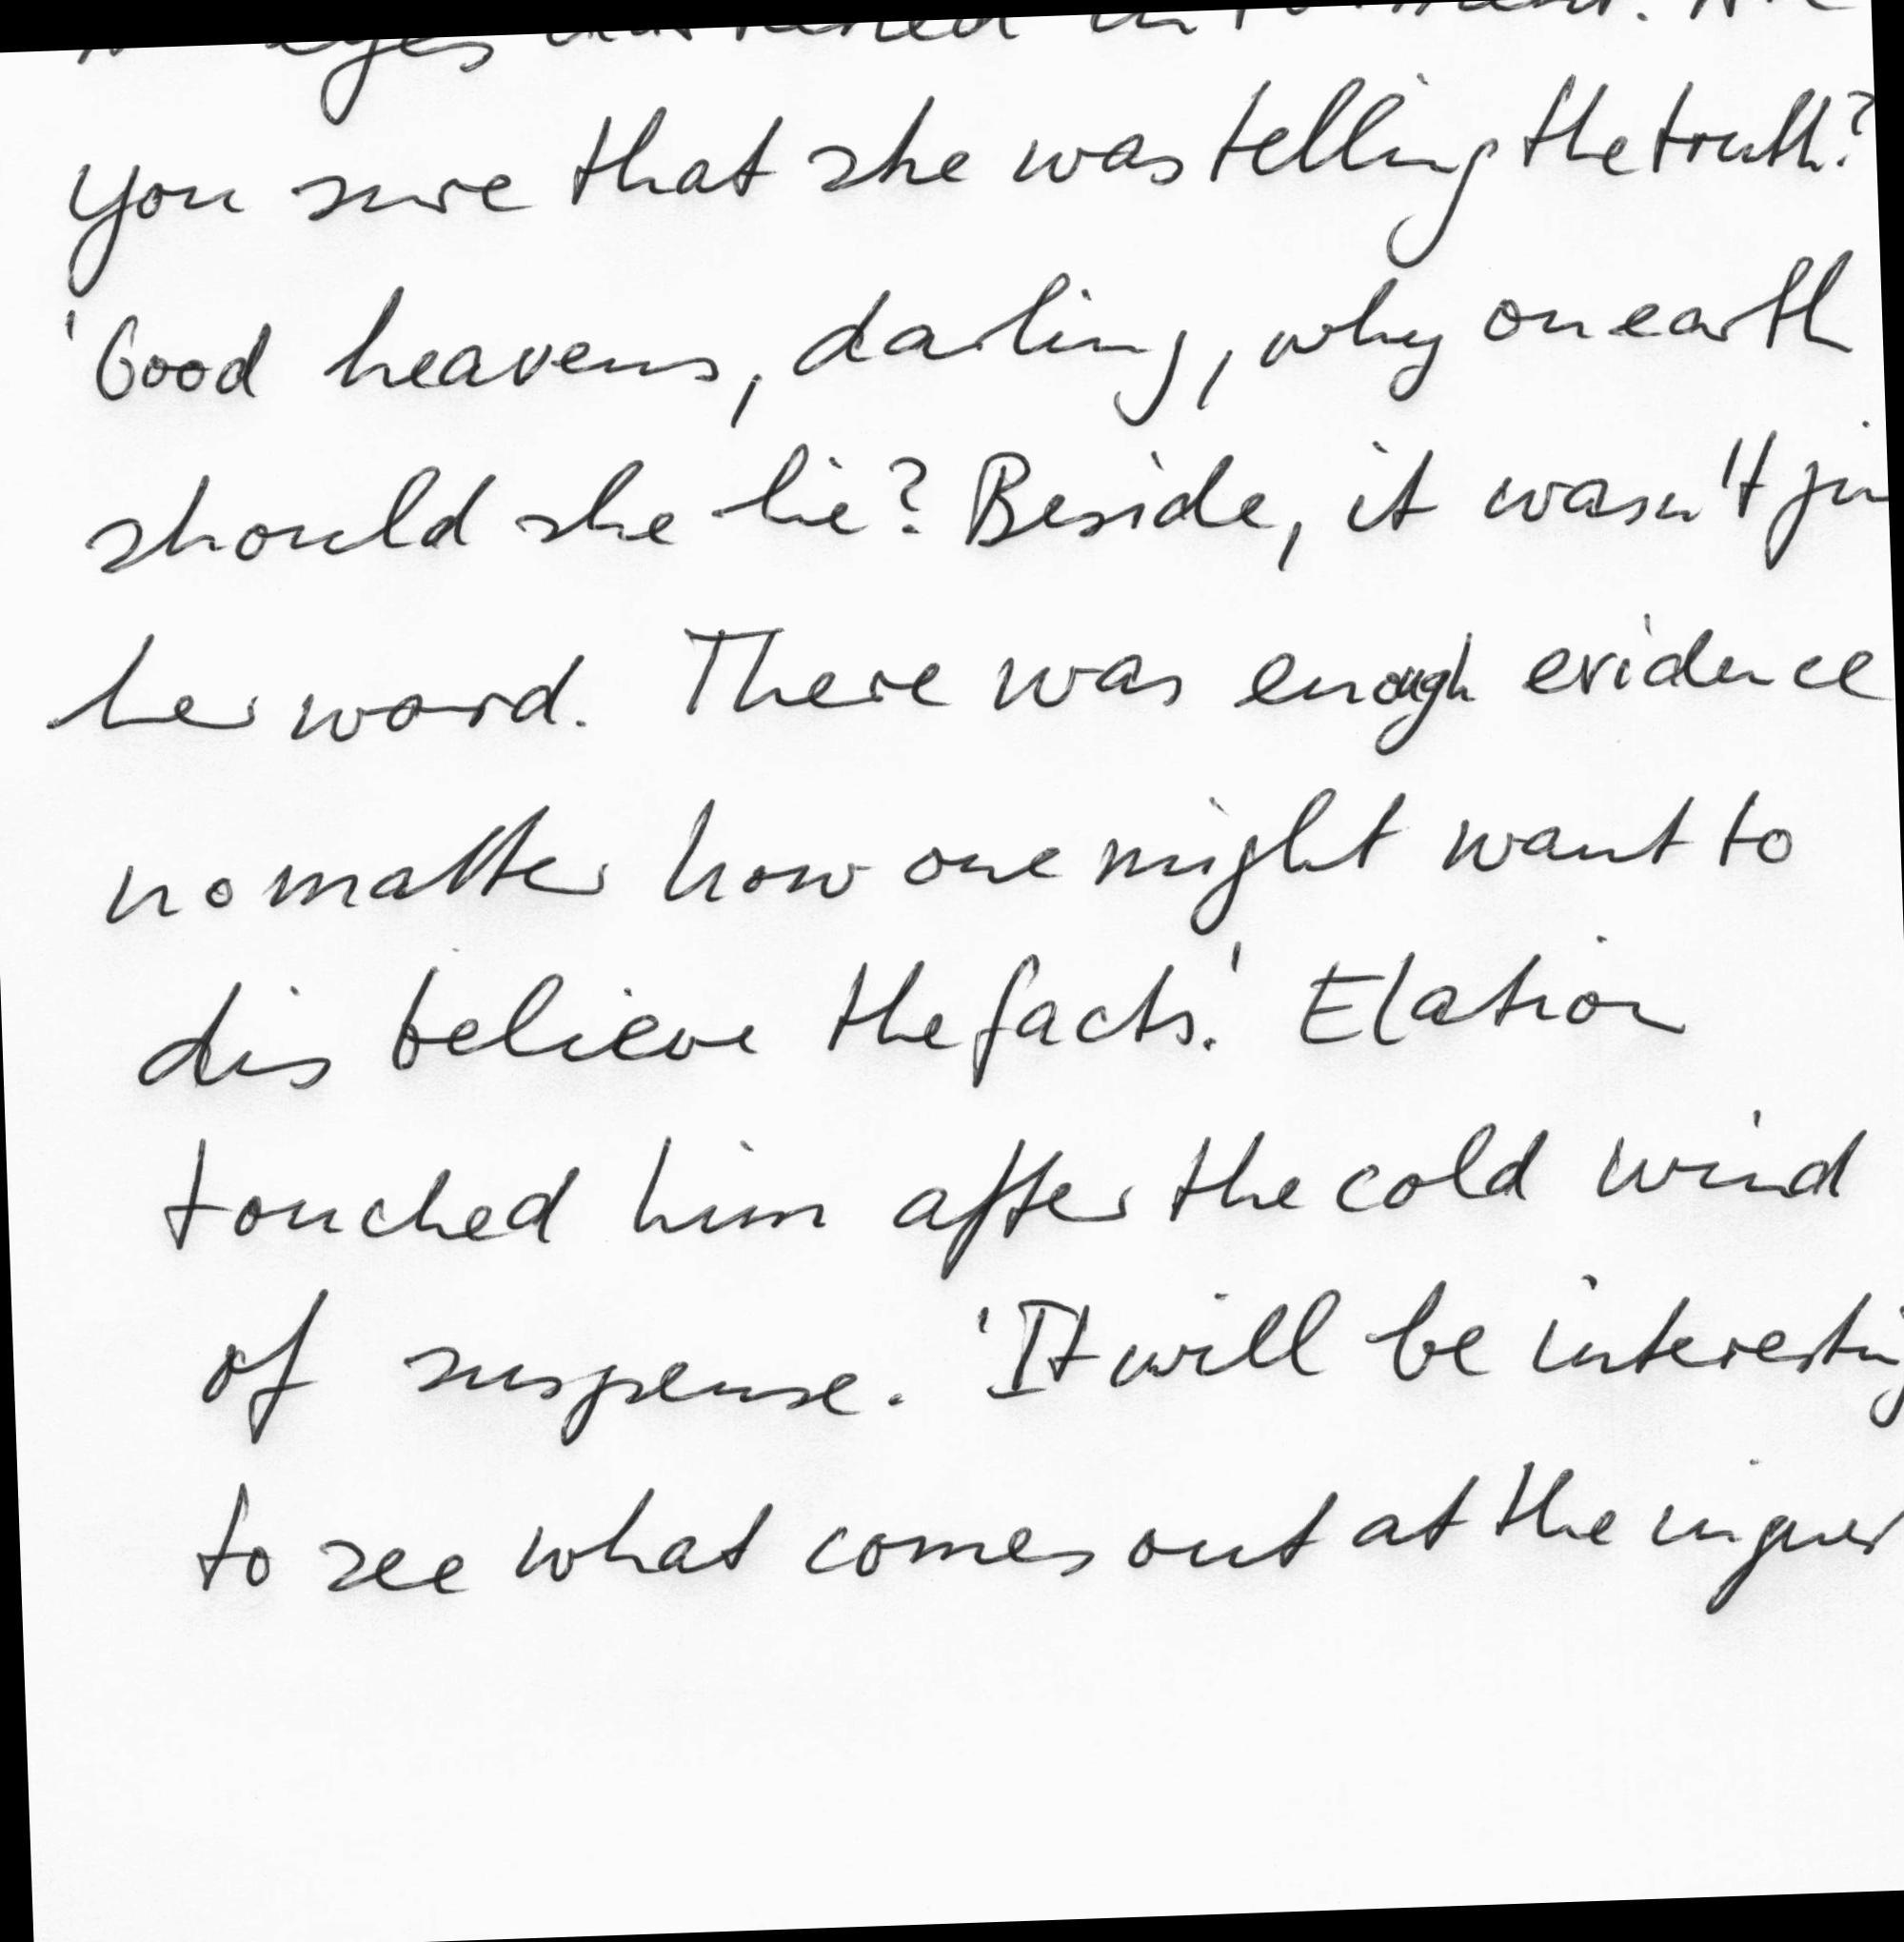 eyes
you sure that she was telling the truth?
'Good heavens, darling, why on earth
should she lie? Beside, it wasn't
her word. There was enough evidence
no matter how one might want to
dis believe the facts.' Elation
touched him after the cold wind
of suspense. 'It will be interesting
to see what comes out at the